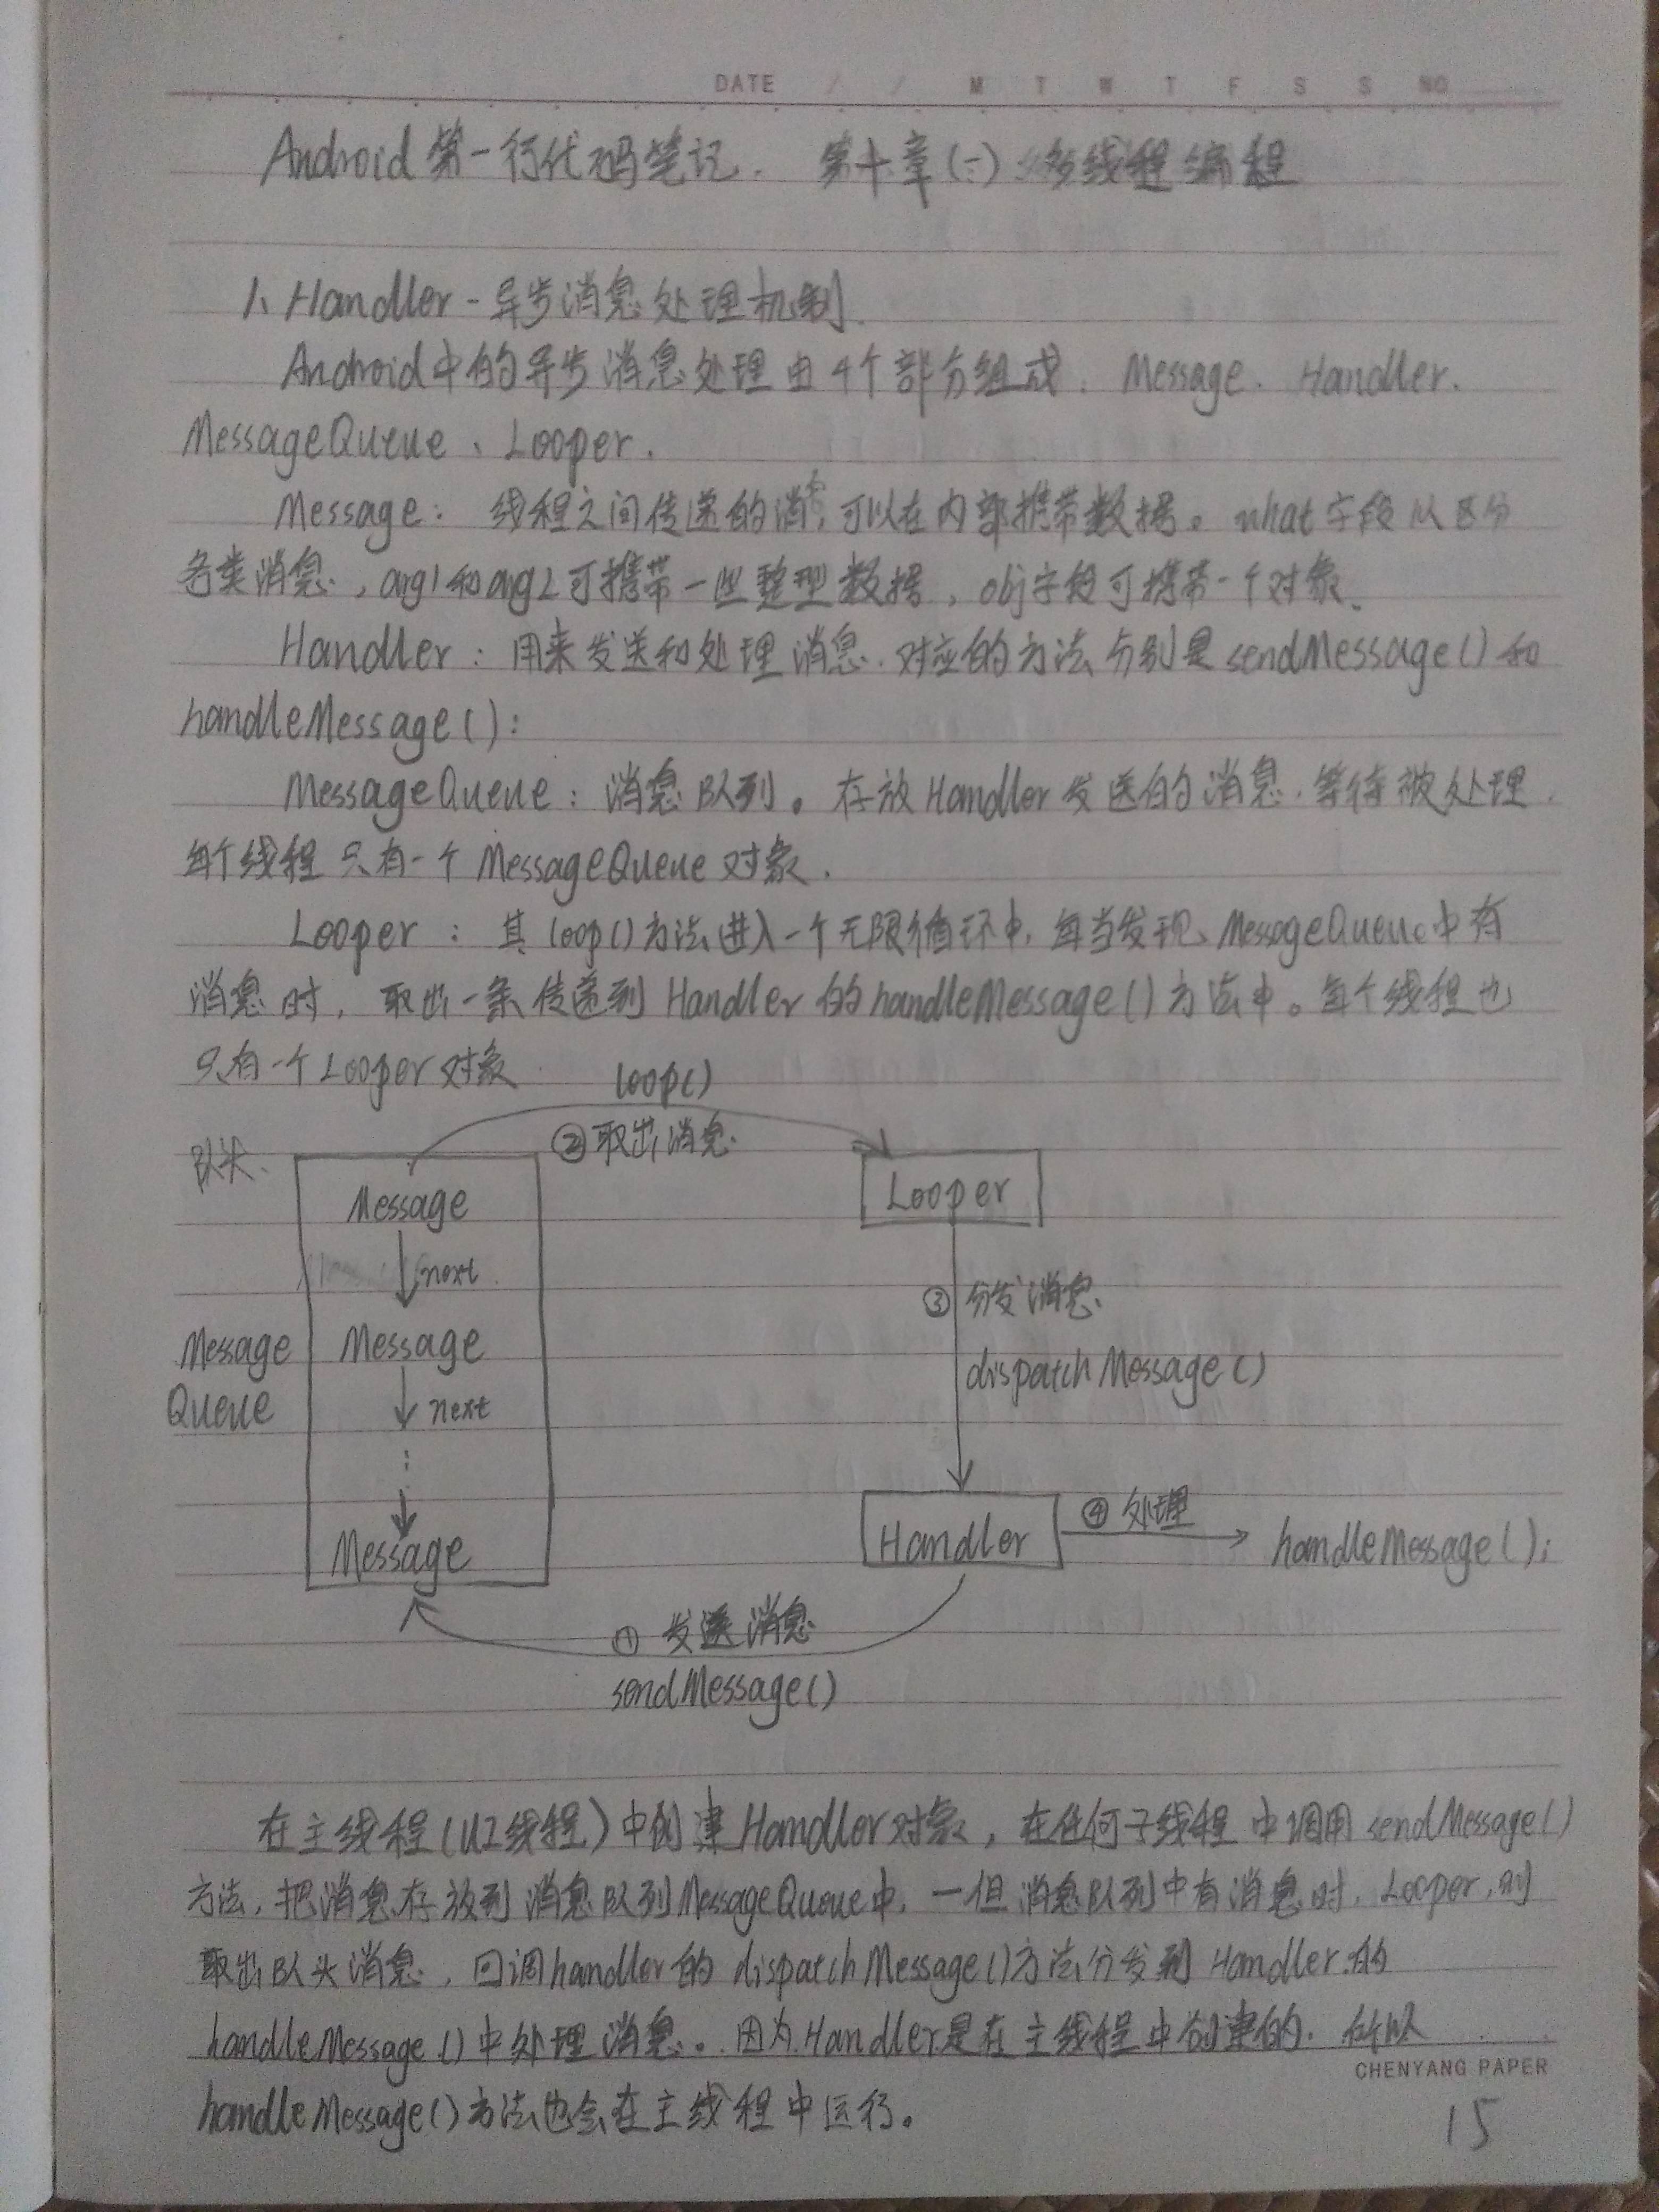 DATE / / M T W T F S S NO
Android第一行代码笔记. 第十章(一) 多线程编程
1、Handler-异步消息处理机制.
Android中的异步消息处理由4个部分组成. Message. Handler.
MessageQueue、Looper.
Message: 线程之间传递的消息,可以在内部携带数据。what字段以区分
各类消息,arg1和arg2可携带一些整型数据,obj字段可携带一个对象.
Handler:用来发送和处理消息.对应的方法分别是sendMessage()和
handleMessage():
MessageQueue:消息队列。存放Handler发送的消息.等待被处理.
每个线程只有一个MessageQueue对象.
Looper:其loop()方法进入一个无限循环中,每当发现MessageQueue中有
消息时,取出一条传递到Handler的handleMessage()方法中。每个线程也
只有一个Looper对象
loop()
②取出消息
队头
Message
Looper
next
③ 分发消息
Message
Queue
Message
dispatchMessage()
next
Message
Handler
④处理
handleMessage();
① 发送消息
sendMessage()
在主线程(UI线程)中创建Handler对象,在任何子线程中调用sendMessage()
方法,把消息存放到消息队列MessageQueue中,一但消息队列中有消息时,Looper,则
取出队头消息,回调handler的dispatchMessage()方法分发到Handler的
handleMessage()中处理消息。因为Handler是在主线程中创建的.所以
CHENYANG PAPER
handleMessage()方法也会在主线程中运行。
15